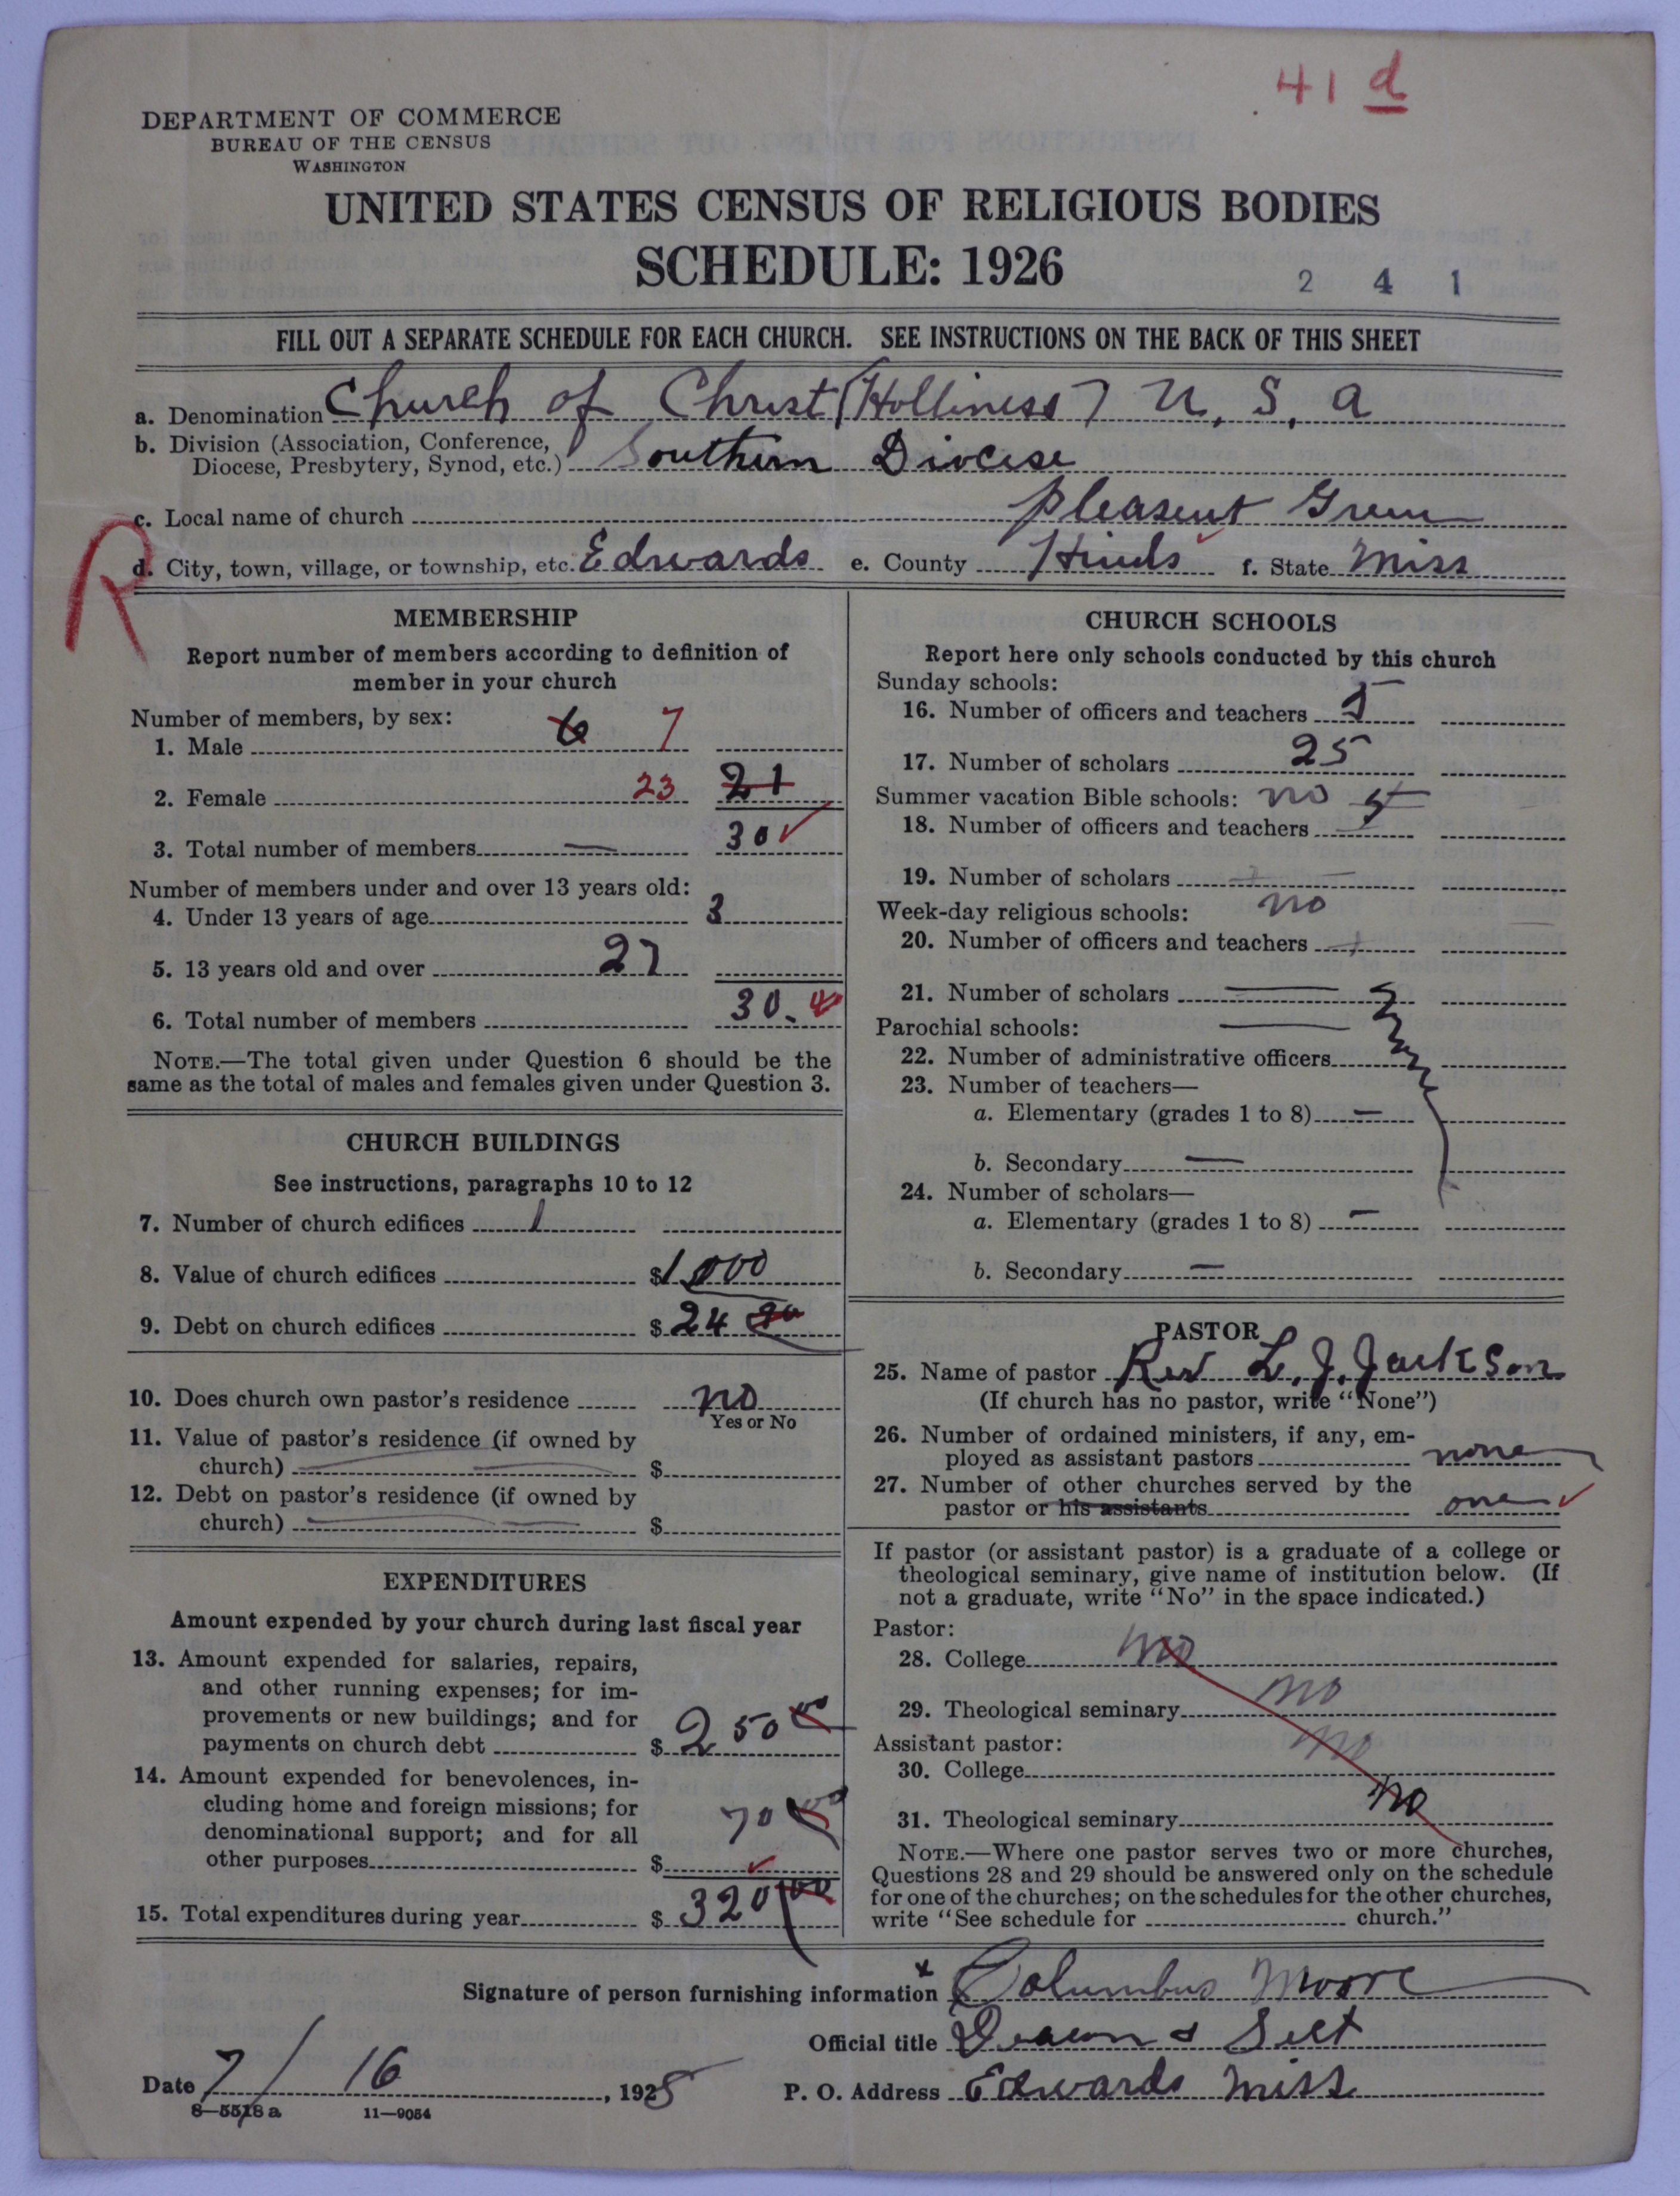 41 d
DEPARTMENT OF COMMERCE
BUREAU OF THE CENSUS
WASHINGTON
UNITED STATES CENSUS OF RELIGIOUS BODIES
SCHEDULE: 1926
2 4 1
FILL OUT A SEPARATE SCHEDULE FOR EACH CHURCH. SEE INSTRUCTIONS ON THE BACK OF THIS SHEET
a. Denomination Church of Christ (Holliness) U, S, a
b. Division (Association, Conference,
Diocese, Presbytery, Synod, etc.) Southern Diocese
c. Local name of church Pleasent Green
R
d. City, town, village, or township, etc. Edwards e. County Hinds f. State Miss
MEMBERSHIP
Report number of members according to definition of
member in your church
Number of members, by sex:
1. Male 6 7
2. Female 23 21
3. Total number of members — 30 ✓
Number of members under and over 13 years old:
4. Under 13 years of age 3
5. 13 years old and over 27
6. Total number of members 30.
NOTE.—The total given under Question 6 should be the
same as the total of males and females given under Question 3.
CHURCH BUILDINGS
See instructions, paragraphs 10 to 12
7. Number of church edifices 1
8. Value of church edifices $1,000
9. Debt on church edifices $ 24
10. Does church own pastor's residence no
Yes or No
11. Value of pastor's residence (if owned by
church) $
12. Debt on pastor's residence (if owned by
church) $
EXPENDITURES
Amount expended by your church during last fiscal year
13. Amount expended for salaries, repairs,
and other running expenses; for im-
provements or new buildings; and for
payments on church debt $ 250 00
14. Amount expended for benevolences, in-
cluding home and foreign missions; for
denominational support; and for all
other purposes $ 70 00 ✓
15. Total expenditures during year $ 320 00
CHURCH SCHOOLS
Report here only schools conducted by this church
Sunday schools:
16. Number of officers and teachers 5
17. Number of scholars 25
Summer vacation Bible schools: no
18. Number of officers and teachers
19. Number of scholars
Week-day religious schools: no
20. Number of officers and teachers
21. Number of scholars —
Parochial schools: —
22. Number of administrative officers
23. Number of teachers—
a. Elementary (grades 1 to 8) —
b. Secondary —
24. Number of scholars—
a. Elementary (grades 1 to 8) —
b. Secondary —
PASTOR
25. Name of pastor Rev L. J. Jackson
(If church has no pastor, write "None")
26. Number of ordained ministers, if any, em-
ployed as assistant pastors none
27. Number of other churches served by the
pastor or his assistants one ✓
If pastor (or assistant pastor) is a graduate of a college or
theological seminary, give name of institution below. (If
not a graduate, write "No" in the space indicated.)
Pastor:
28. College no
29. Theological seminary no
Assistant pastor:
30. College no
31. Theological seminary no
NOTE.—Where one pastor serves two or more churches,
Questions 28 and 29 should be answered only on the schedule
for one of the churches; on the schedules for the other churches,
write "See schedule for church."
Signature of person furnishing information x Columbus Moore
Official title Deacon & Sect
Date 7/16, 1928 P. O. Address Edwards Miss
8—5518 a 11—9054